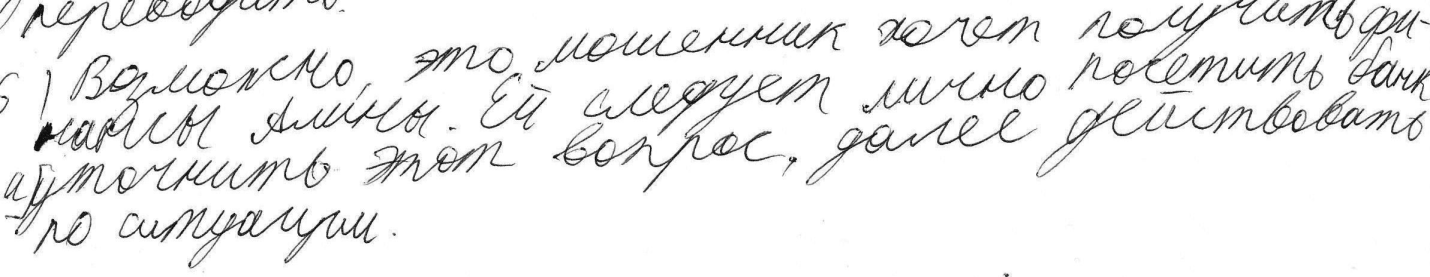 переводить.
б) Возможно, это мошенник хочет получить фи-
нансы Алины. Ей следует лично посетить банк
и уточнить этот вопрос, далее действовать
по ситуации.